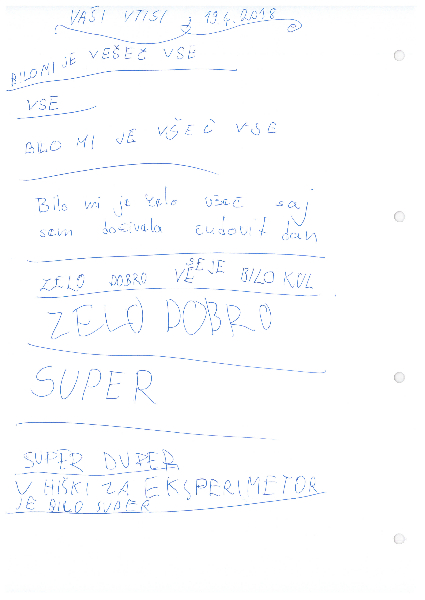 VAŠI VTISI 19.4.2018
BILO MI JE VEŠEČ VSE
VSE
BILO MI JE VŠEČ VSE
Bilo mi je zelo všeč saj
sem doživela čudovit dan
ZELO DOBRO VSE JE BILO KUL
ZELO DOBRO
SUPER
SUPER DUPER
V HIŠKI ZA EKSPERIMETOR
JE BILO SUPER